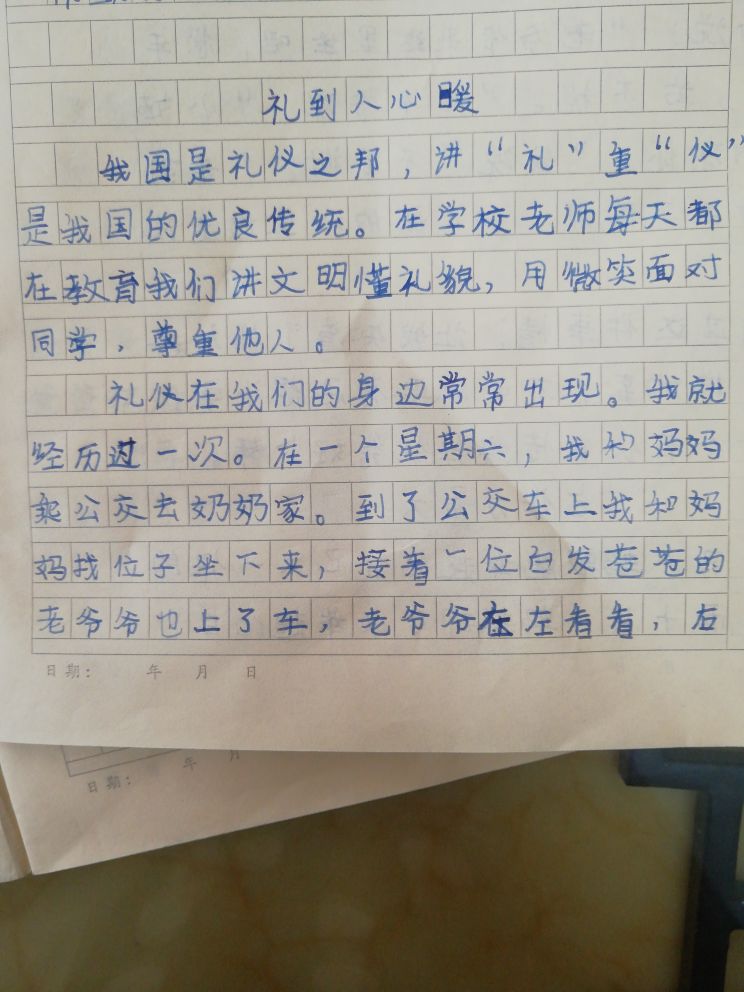 礼到人心暖
我国是礼仪之邦，讲“礼”重“仪”
是我国的优良传统。在学校老师每天都
在教育我们讲文明懂礼貌，用微笑面对
同学，尊重他人。
礼仪在我们的身边常常出现。我就
经历过一次。在一个星期六，我和妈妈
乘公交去奶奶家。到了公交车上我和妈
妈找位子坐下来，接着一位白发苍苍的
老爷爷也上了车，老爷爷在左看看，右
日期： 年 月 日
日期： 年 月